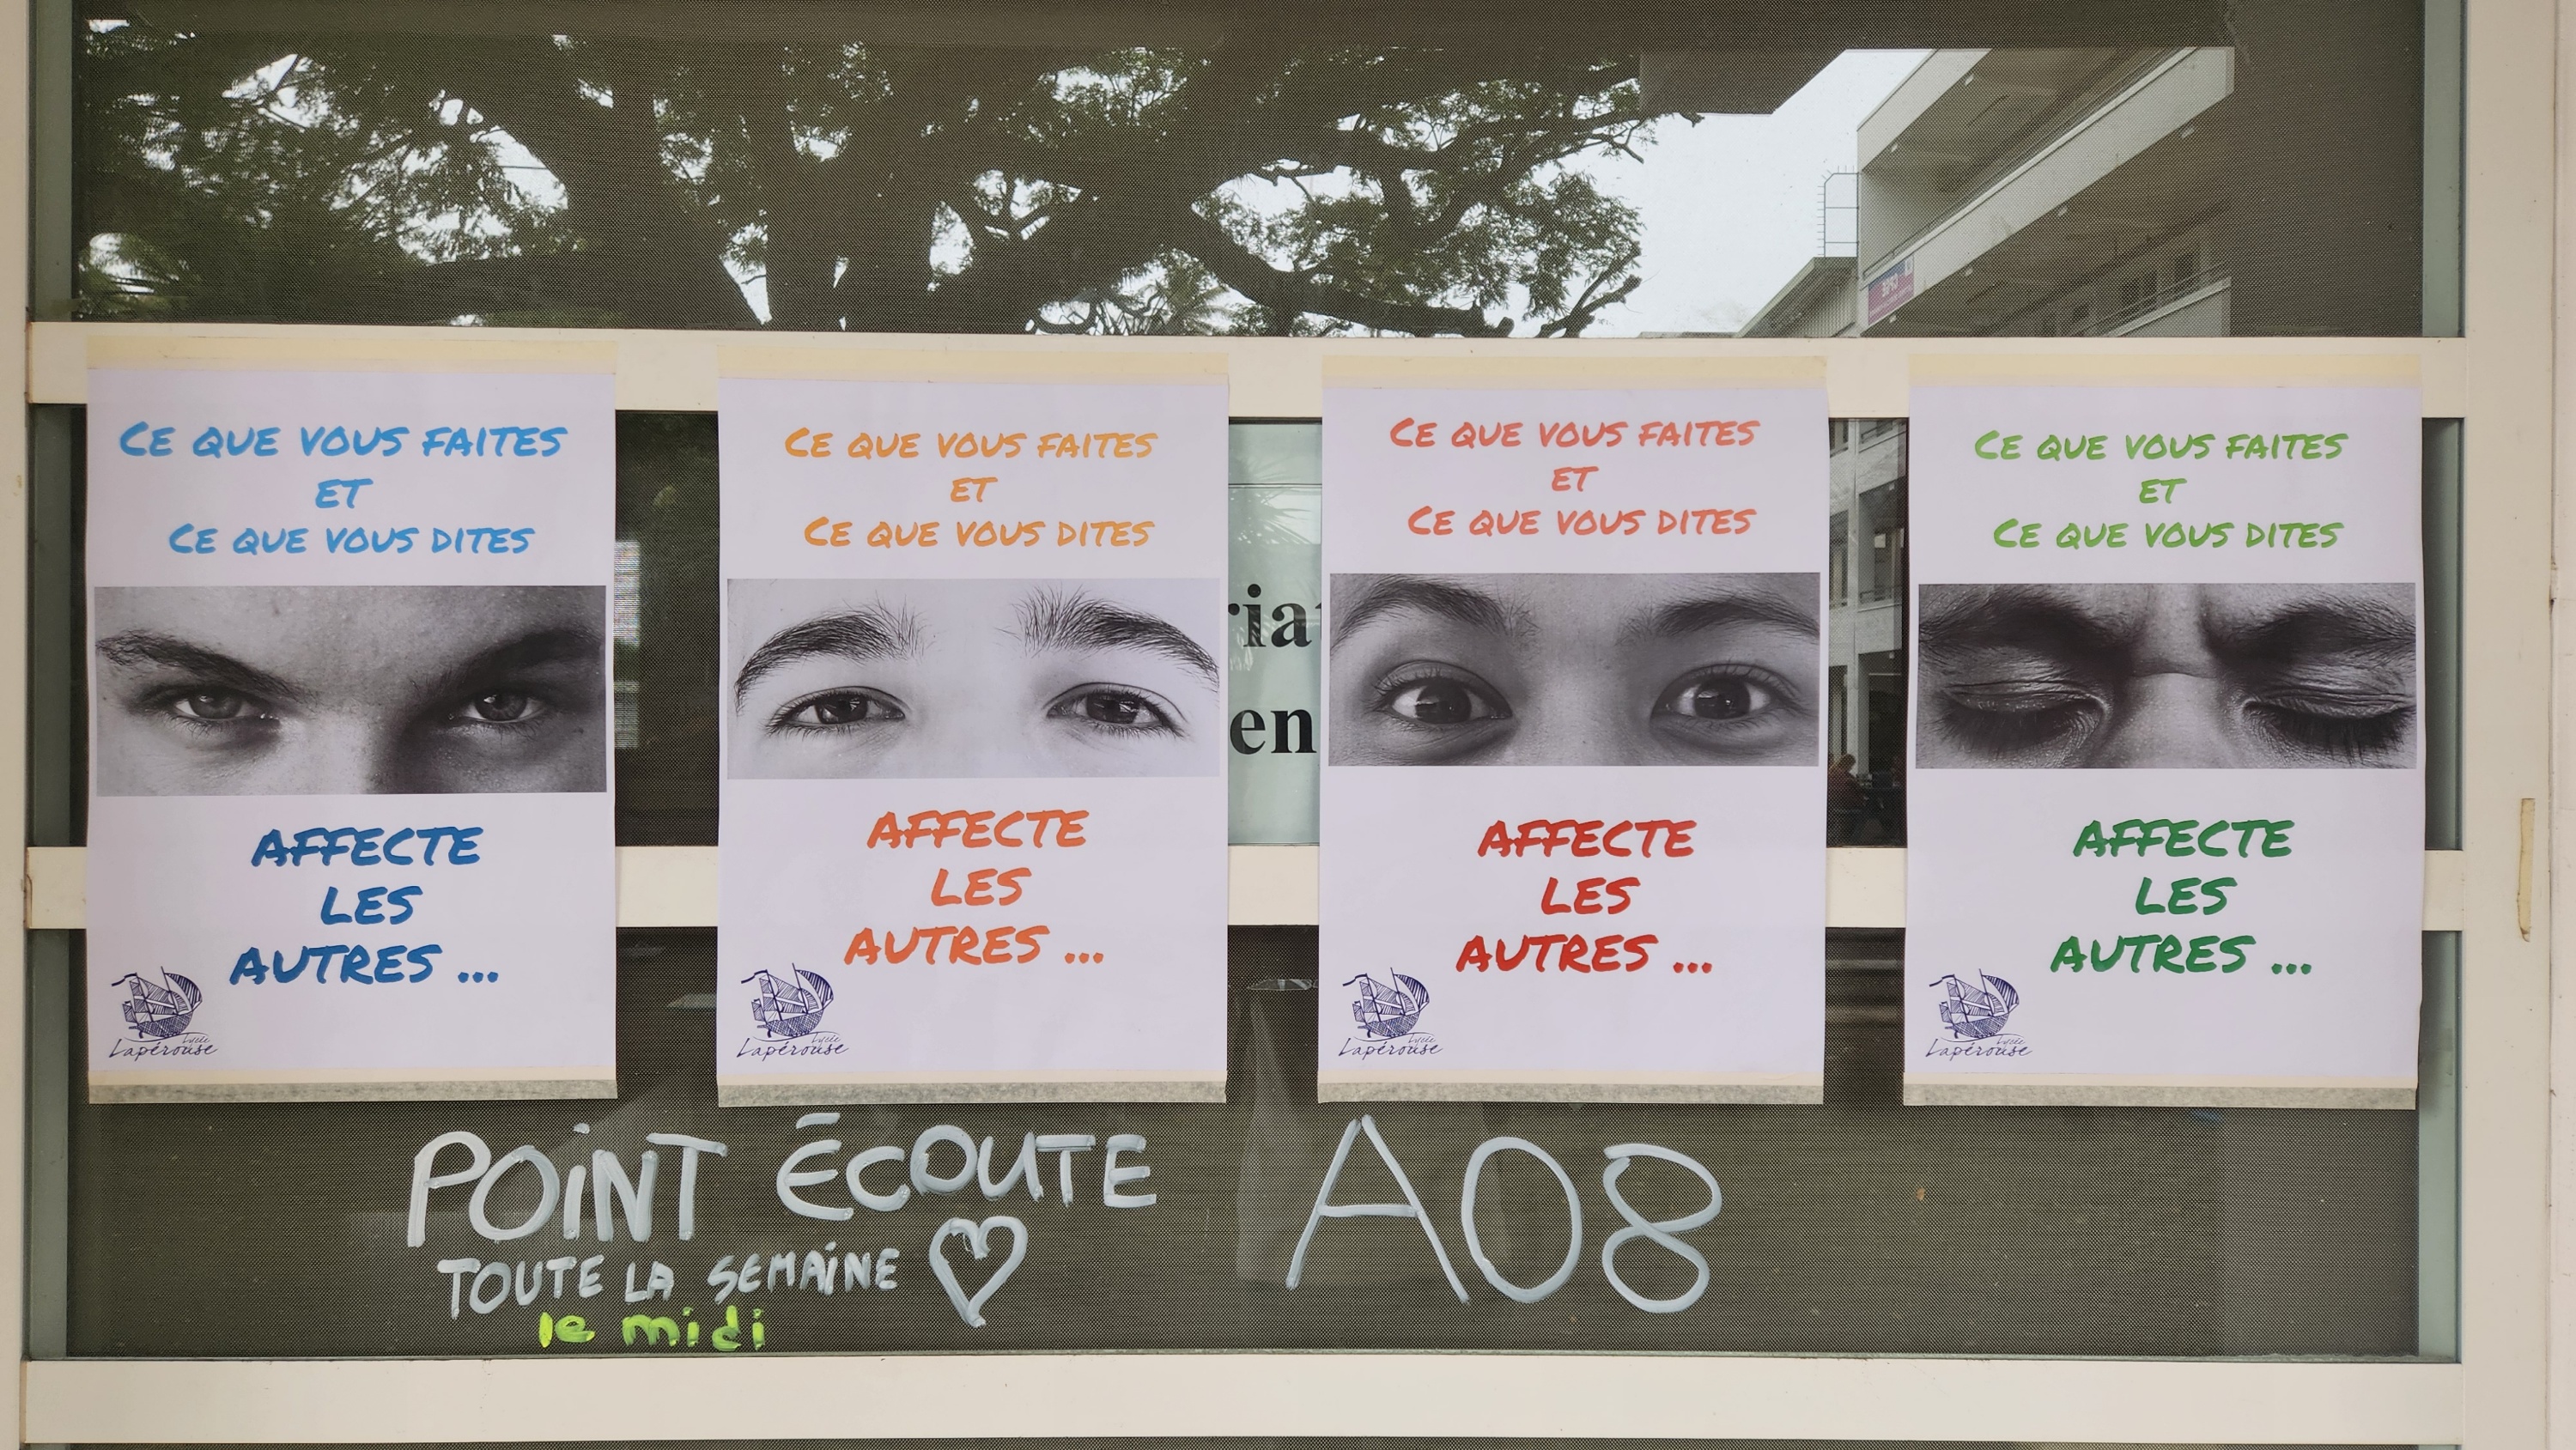 CE QUE VOUS FAITES
ET
CE QUE VOUS DITES
AFFECTE
LES
AUTRES ...
Lycée
Lapérouse
CE QUE VOUS FAITES
ET
CE QUE VOUS DITES
AFFECTE
LES
AUTRES ...
Lycée
Lapérouse
CE QUE VOUS FAITES
ET
CE QUE VOUS DITES
AFFECTE
LES
AUTRES ...
Lycée
Lapérouse
CE QUE VOUS FAITES
ET
CE QUE VOUS DITES
AFFECTE
LES
AUTRES ...
Lycée
Lapérouse
POINT ÉCOUTE A08
TOUTE LA SEMAINE
le midi